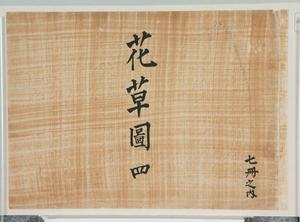 花草圖四
七冊之内